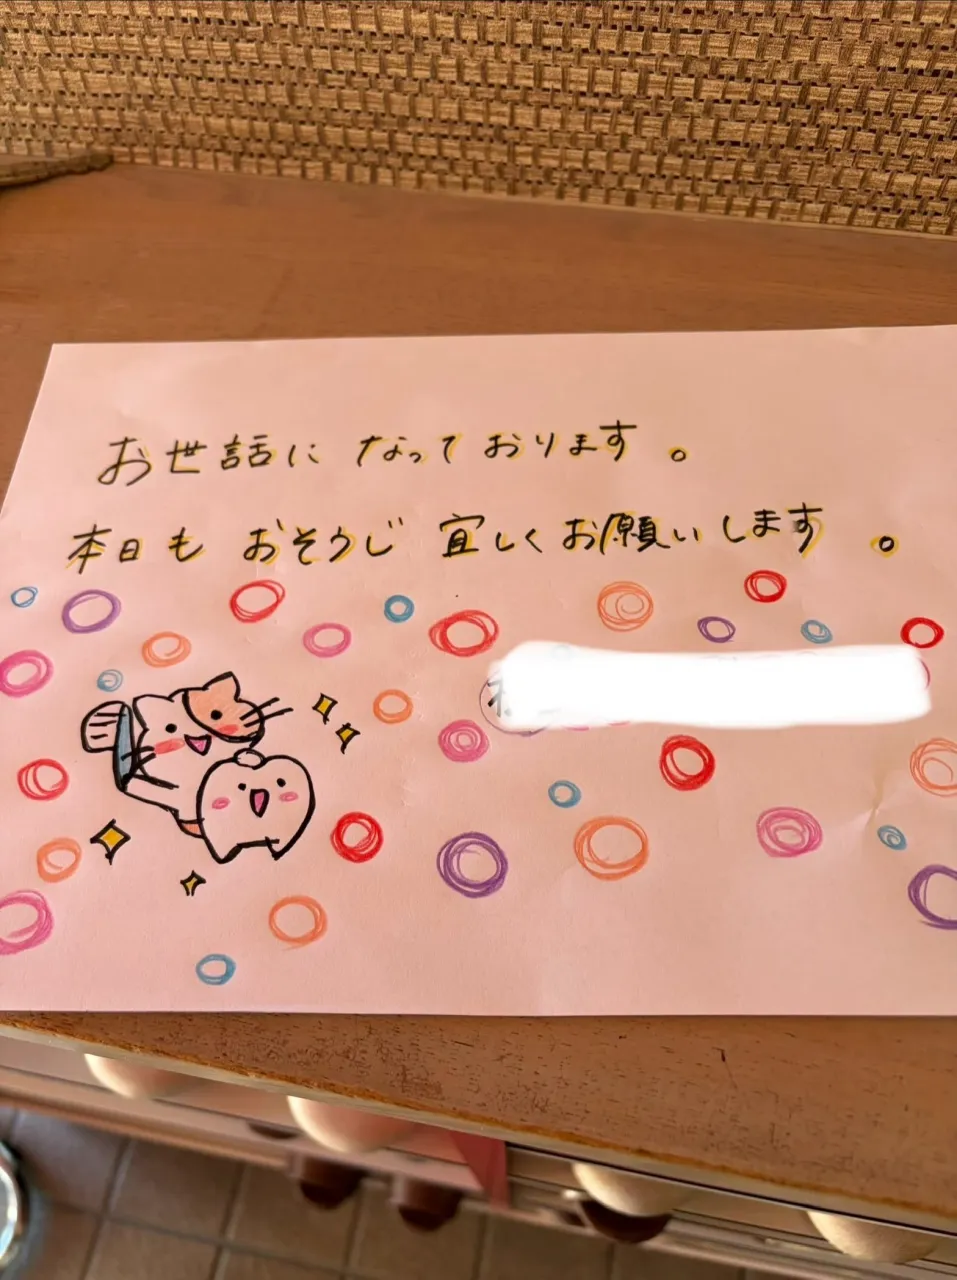 お世話になっております。
本日もおそうじ宜しくお願いします。